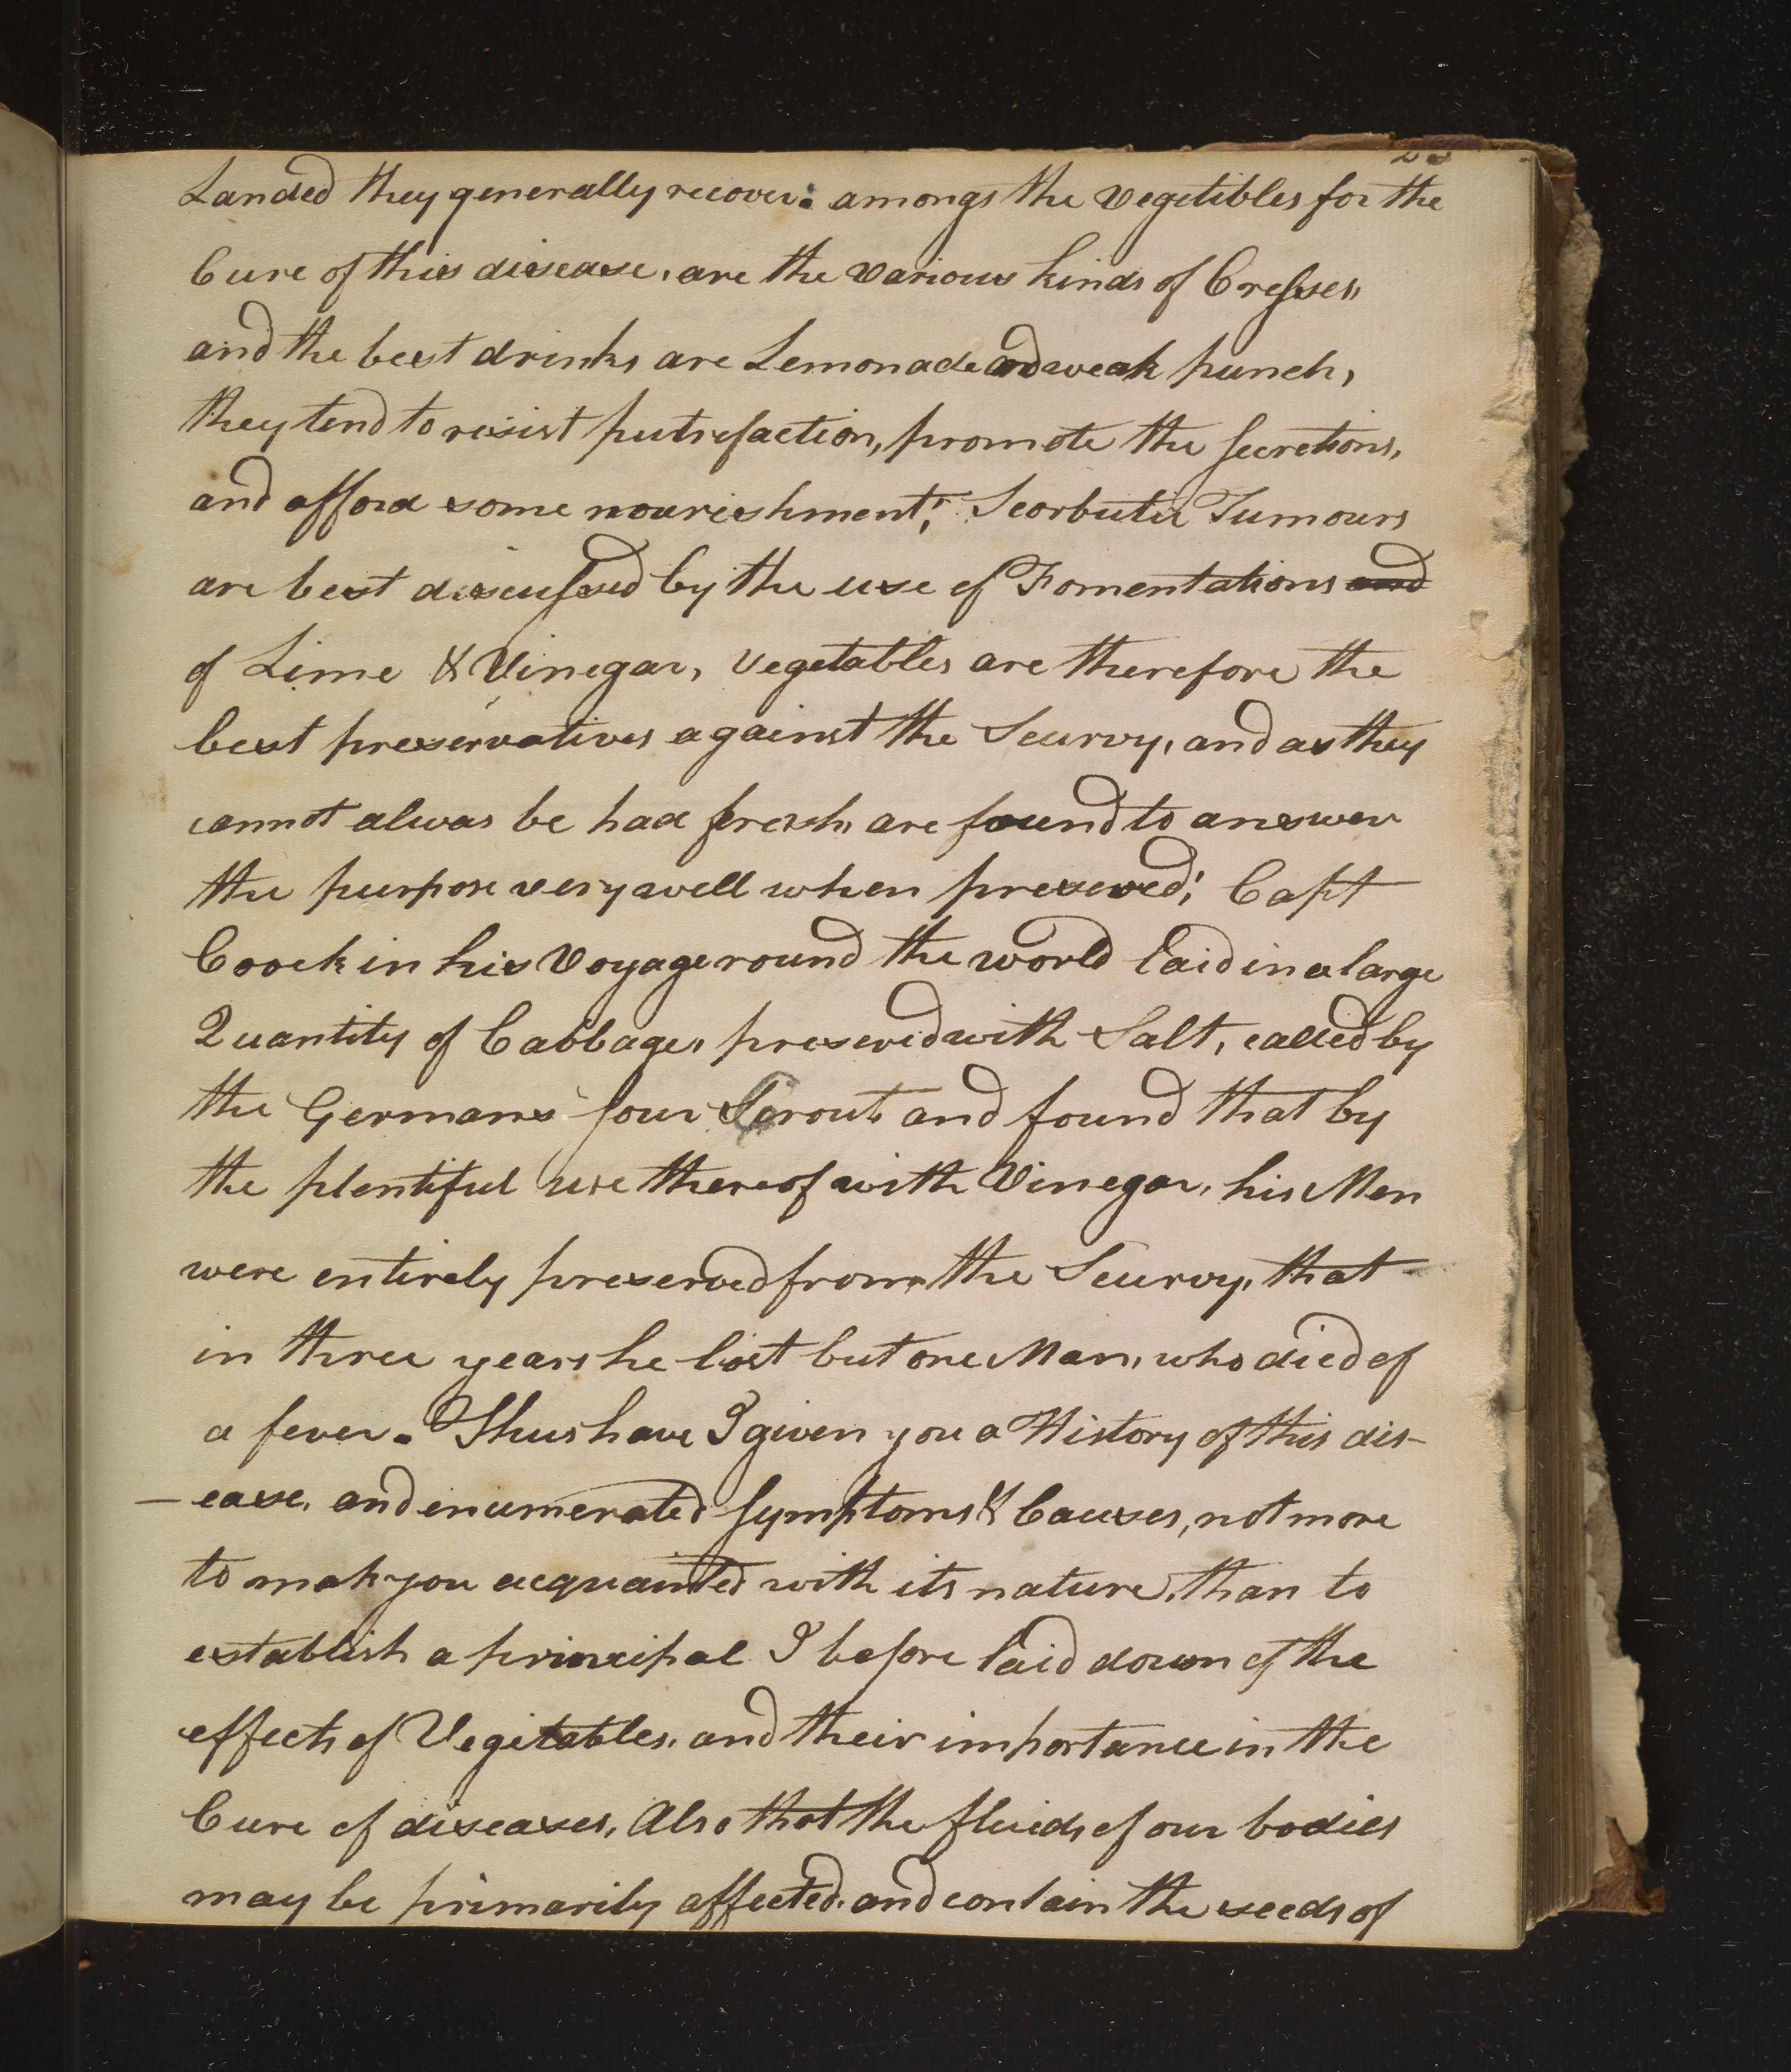 Landed they generally recover: amongs the Vegetibles for the
Cure of this disease, are the various kinds of Cresses,
and the best drinks are Lemonade and weak punch,
they tend to resist putrefaction, promote the secretions,
and afford some nourishment; Scorbutic Tumours
are best discussed by the use of Fomentations and
of Lime & Vinegar, Vegetables are therefore the
best preservatives against the Scurvy, and as they
cannot alwas be had fresh, are found to answer
the purpose very well when preseved; Capt
Coock in his Voyage round the world laid in a large
Quantity of Cabbages preseved with Salt, called by
the Germans sour Crout and found that by
the plentiful use thereof with Vinegar, his Men
were entirely preserved from the Scurvy, that
in three years he lost but one Man, who died of
a fever. Thus have I given you a History of this dis-
-ease, and enumerated symptoms & Causes, not more
to mak you acquainted with its nature, than to
establish a principal I before laid down of the
effects of Vegitables, and their importance in the
Cure of diseases, Also that the fluids of our bodies
may be primarily affected, and contain the seeds of